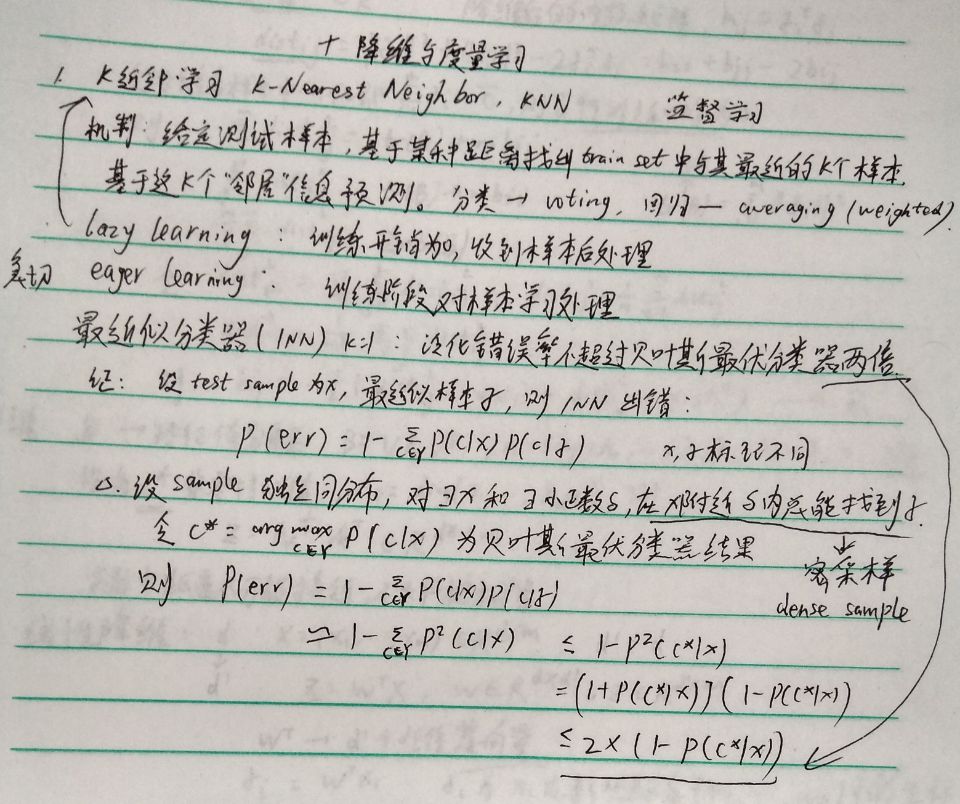 十 降维与度量学习
1. K近邻学习 K-Nearest Neighbor, KNN 监督学习
机制: 给定测试样本, 基于某种距离找出train set中与其最近的K个样本,
基于这K个"邻居"信息预测。分类→voting, 回归—averaging (weighted).
lazy learning: 训练开销为0, 收到样本后处理
急切 eager learning: 训练阶段对样本学习处理
最近似分类器(1NN) k=1: 泛化错误率不超过贝叶斯最优分类器两倍.
证: 设test sample为x, 最近似样本z, 则1NN出错:
P(err) = 1 - Σ_{c∈Y} P(c|x) P(c|z) x, z标记不同
设sample独立同分布, 对∃x和∃小正数δ, 在x附近δ内总能找到z.
令 c* = arg max_{c∈Y} P(c|x) 为贝叶斯最优分类器结果
密采样
则 P(err) = 1 - Σ_{c∈Y} P(c|x)P(c|z)
dense sample
≃ 1 - Σ_{c∈Y} P²(c|x) ≤ 1-P²(c*|x)
= (1+P(c*|x))(1-P(c*|x))
≤ 2×(1-P(c*|x))